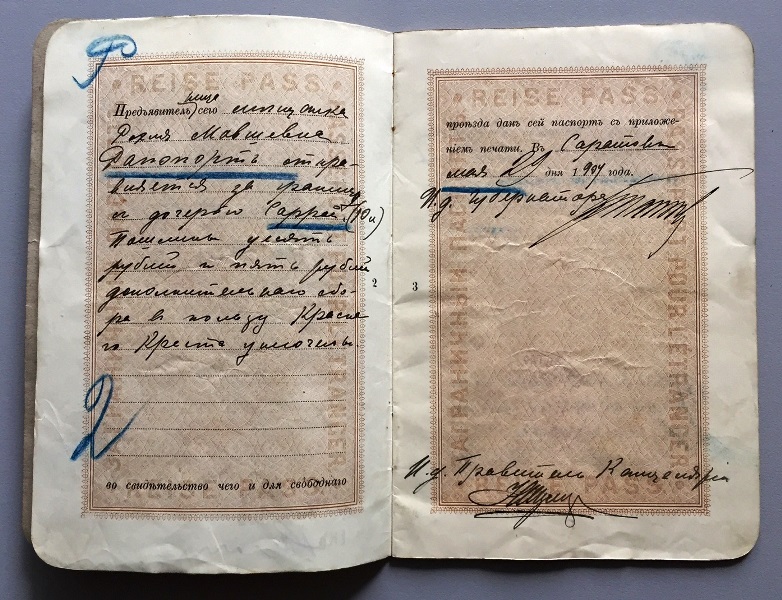 Р
REISE PASS
Предъявитель)ница сего мещанка
Мавшевна
Рапопортъ отпра-
вляется за границу
съ дочерью Саррой (10 л)
Пошлины десять
рублей и пять рублей
дополнительнаго сбо-
ра в пользу Красна-
го Креста уплочены
2
2
во свидѣтельство чего и для свободнаго
REISE PASS
проѣзда данъ сей паспортъ съ приложе-
ніемъ печати. Въ Саратовѣ
мая 29 дня 1907 года.
И. д. Губернатора
3
ЗАГРАНИЧНЫЙ ПАС
POUR L'ÉTRANGER
И. д. Правитель Канцеляріи